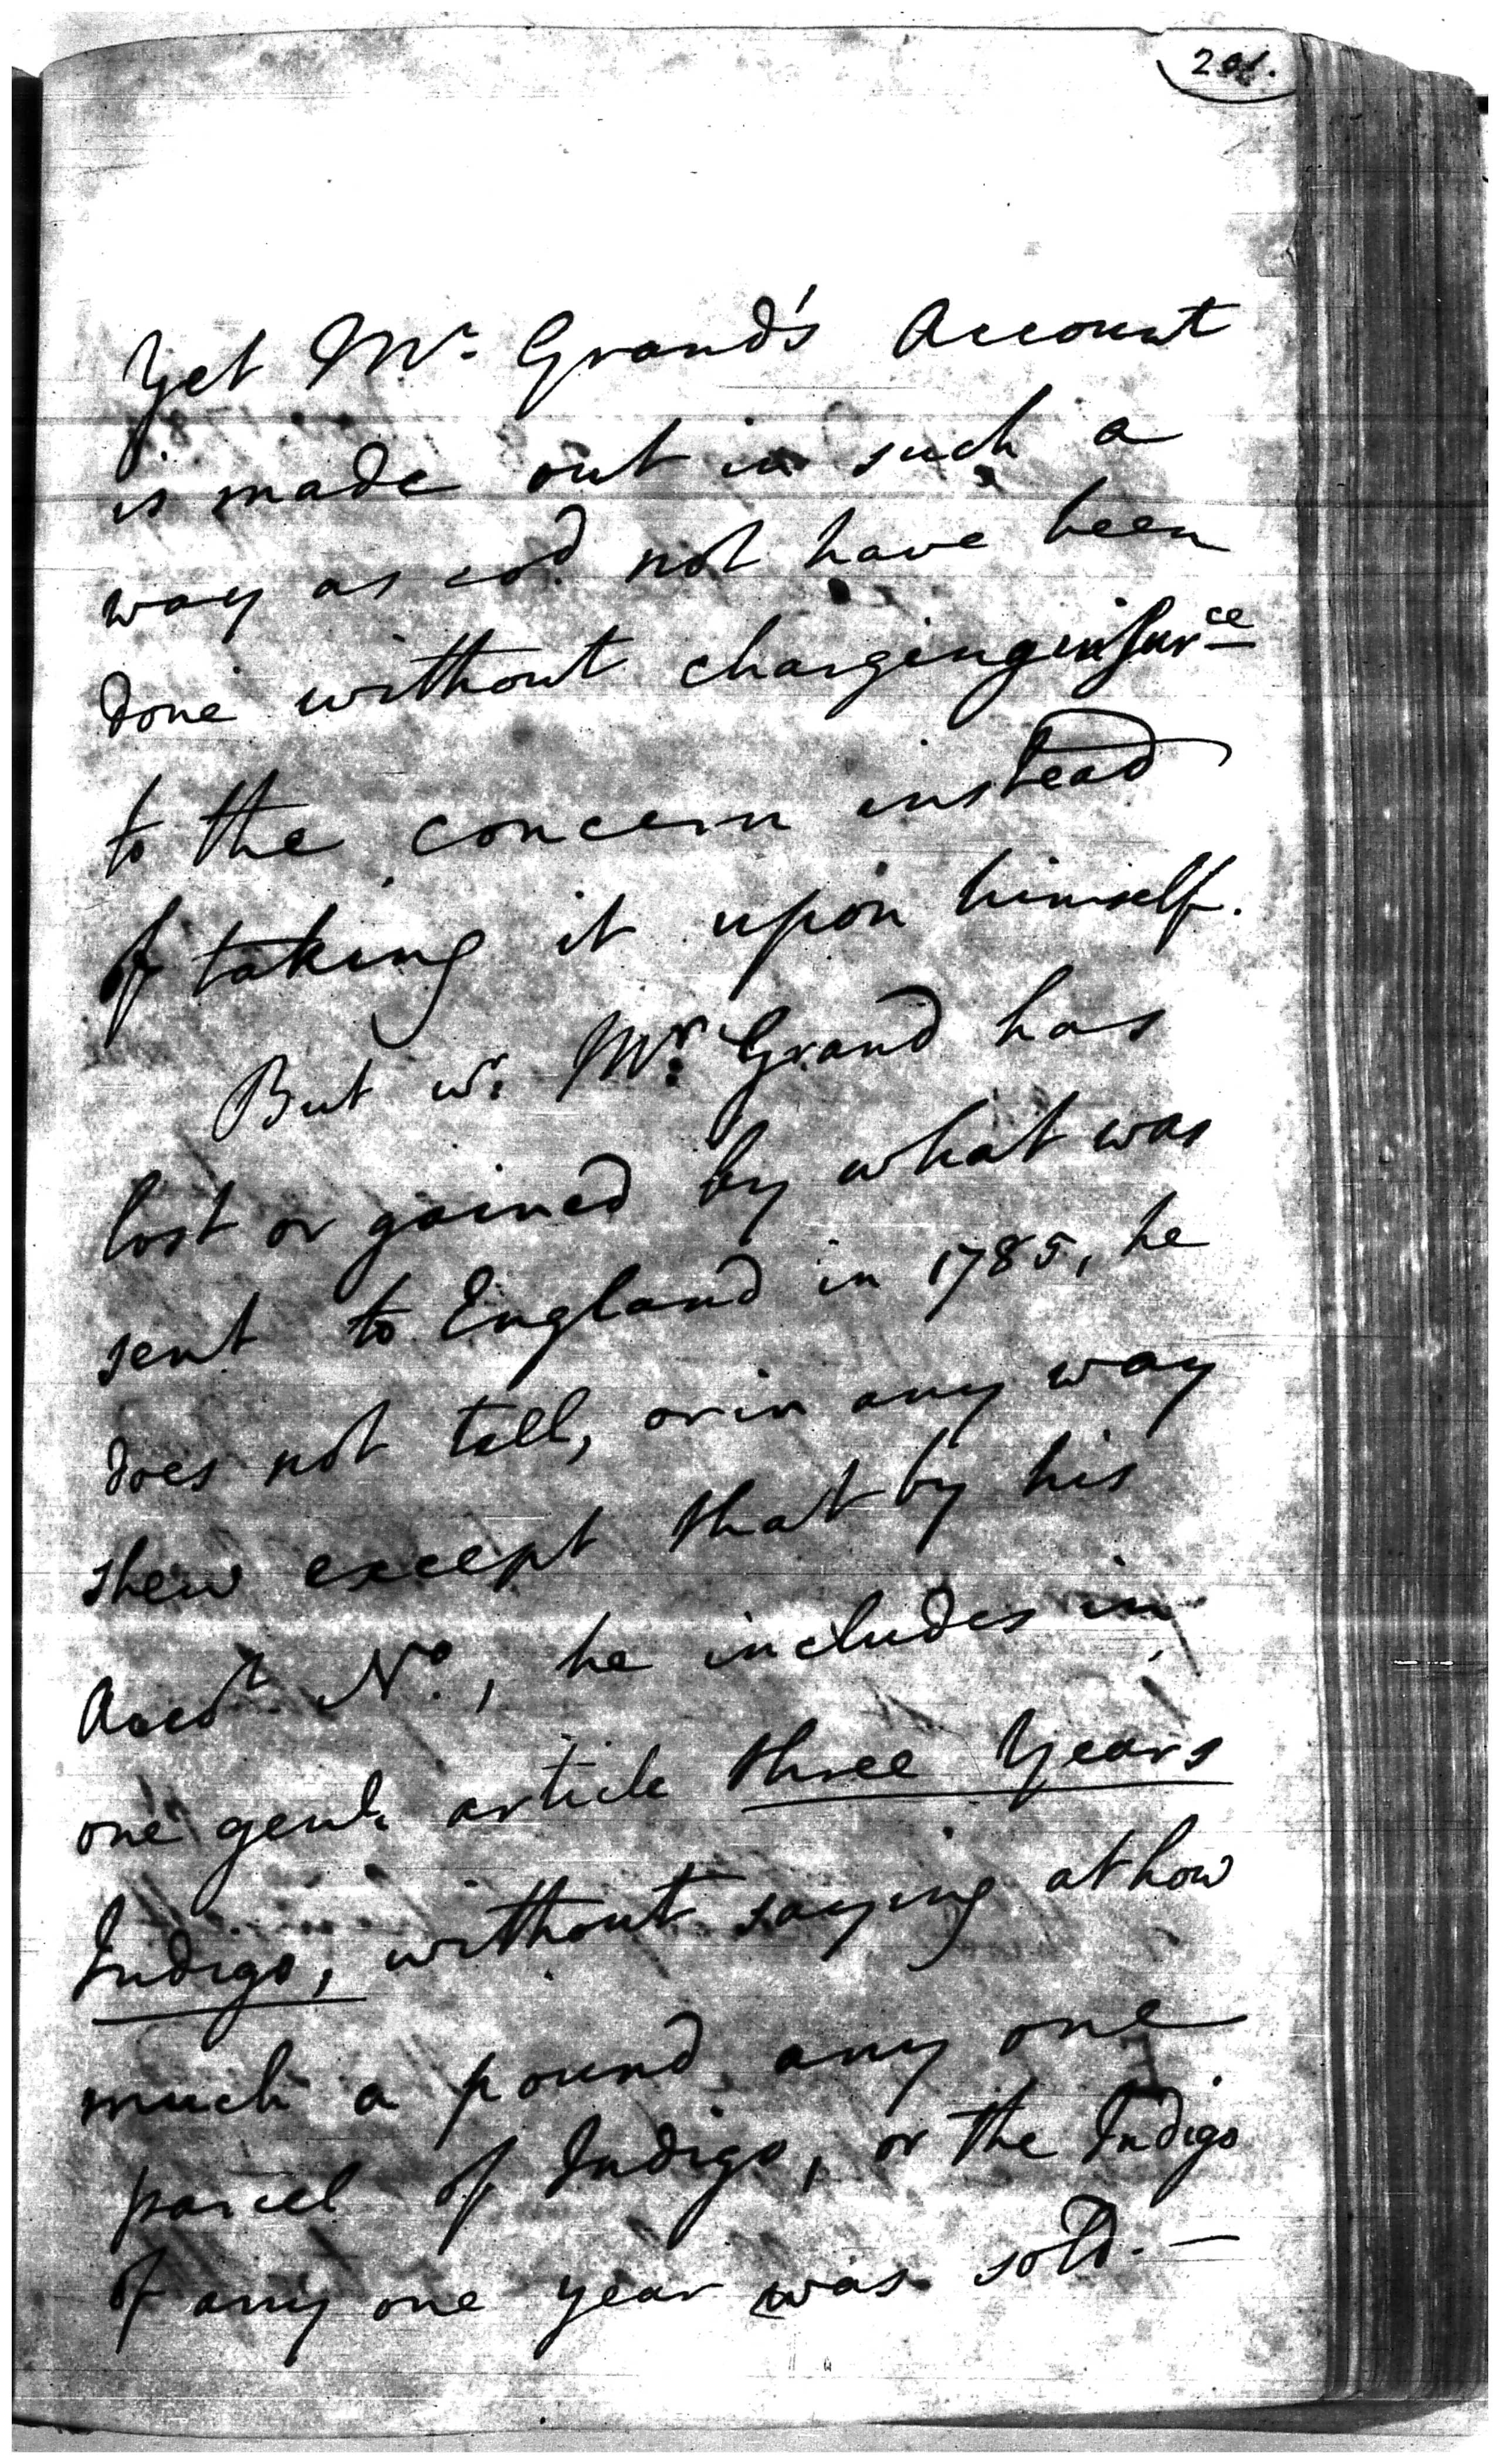 201.
Yet Mr. Grand's Account
is made out in such a
way as cod. not have been
done without charging insurce
to the concern instead
of taking it upon himself.
But wr. Mr. Grand has
lost or gained by what was
sent to England in 1785, he
does not tell, or in any way
shew except that by his
Accot. No., he includes in
one genl. article three Years
Indigo, without saying at how
much a pound any one
parcel of Indigo, or the Indigo
of any one year was sold. —